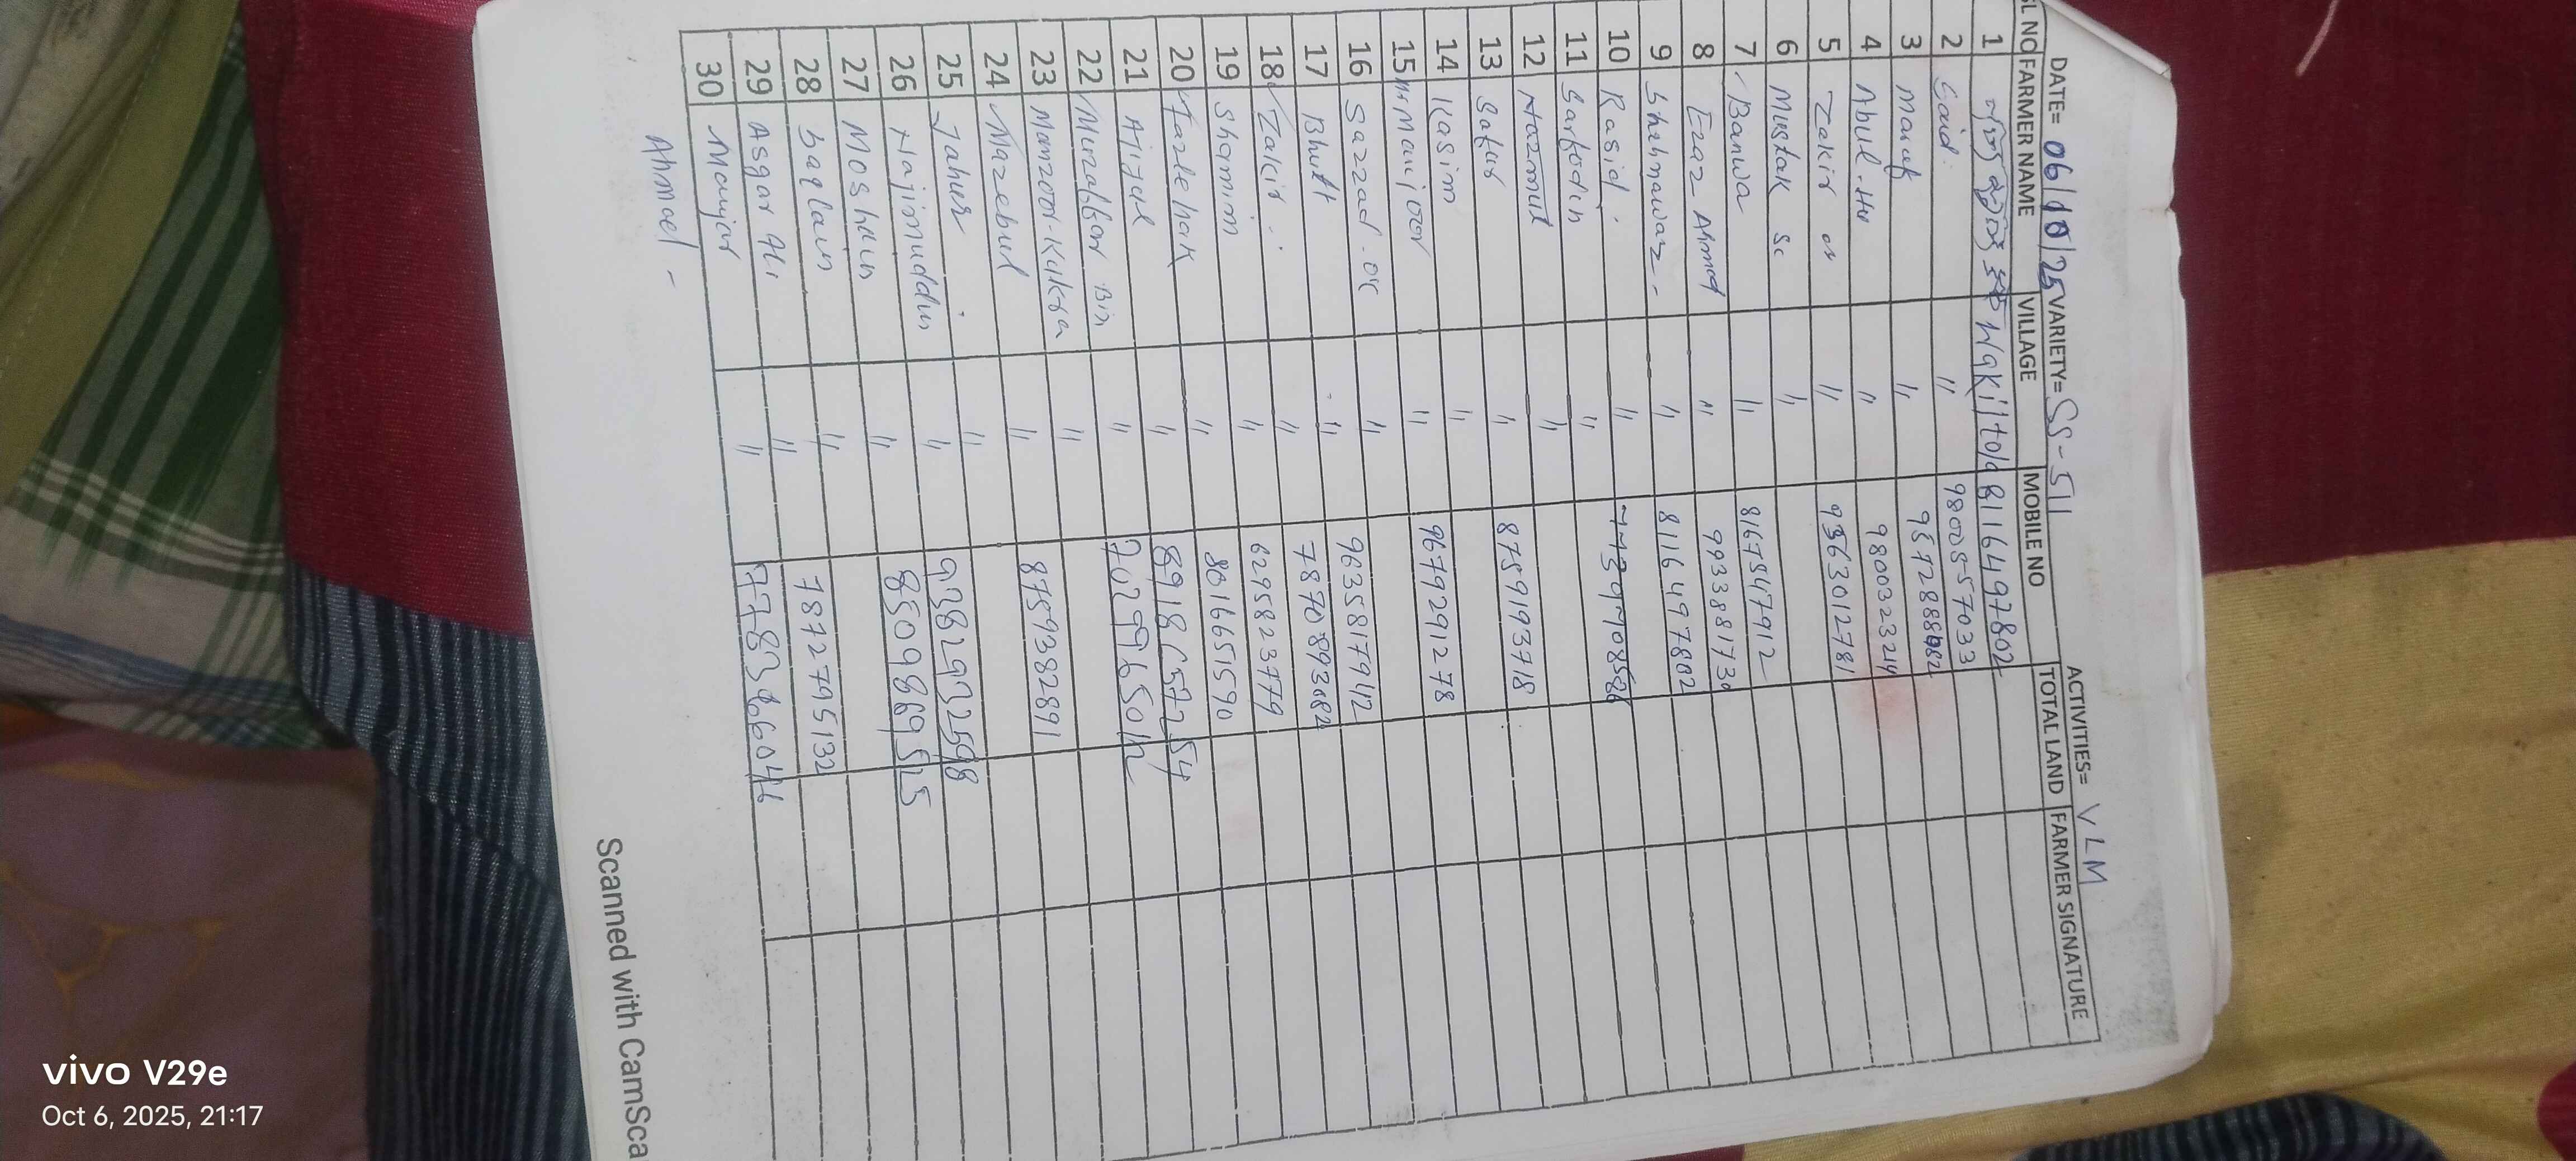 DATE= 06/10/25 VARIETY= SS-511 ACTIVITIES= VLM
SL NO FARMER NAME VILLAGE MOBILE NO TOTAL LAND FARMER SIGNATURE
1 Wakiltola 8116497802
2 Said. " 9800557033
3 Maruf "
4 Abul " 9800323244
5 Zakir " 9563012781
6 Mustak Sc "
7 Banwa " 8167547912
8 Ezaz Ahmed " 9933881730
9 Shahnawaz - " 8116497802
10 Rasid. "
11 Sarfudin "
12 Nazmul " 8759193718
13 "
14 Kasim " 9679291278
15 "
16 Sazzad " 9635817942
17 Bhutt " 7870893682
18 Zakir " 6295823779
19 Shamim " 8016651590
20 Fazle hak " 8918657254
21 Ajijul "
22 Muzaffar Bin "
23 Manzoor " 8759382891
24 Mazebul "
25 Jahur " 9382932598
26 Najimuddin " 8509869515
27 "
28 Saqlain " 7872795132
29 Asgar Ali "
30 Manjar
Ahmael -
Scanned with CamSca
vivo V29e
Oct 6, 2025, 21:17